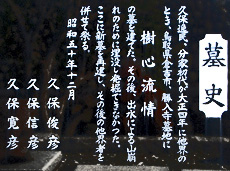 墓史
久保道寛、分家初代が大正四年に他界の
とき、鳥取県倉吉市、勝入寺墓地に
樹心流情
の墓を建てた。その後、出水による山崩
れのために埋没、発掘できなかった。
ここに新墓を再建し、その後の他界者を
併せて祭る。
昭和五十年十二月
久保俊彦
久保信彦
久保寛彦